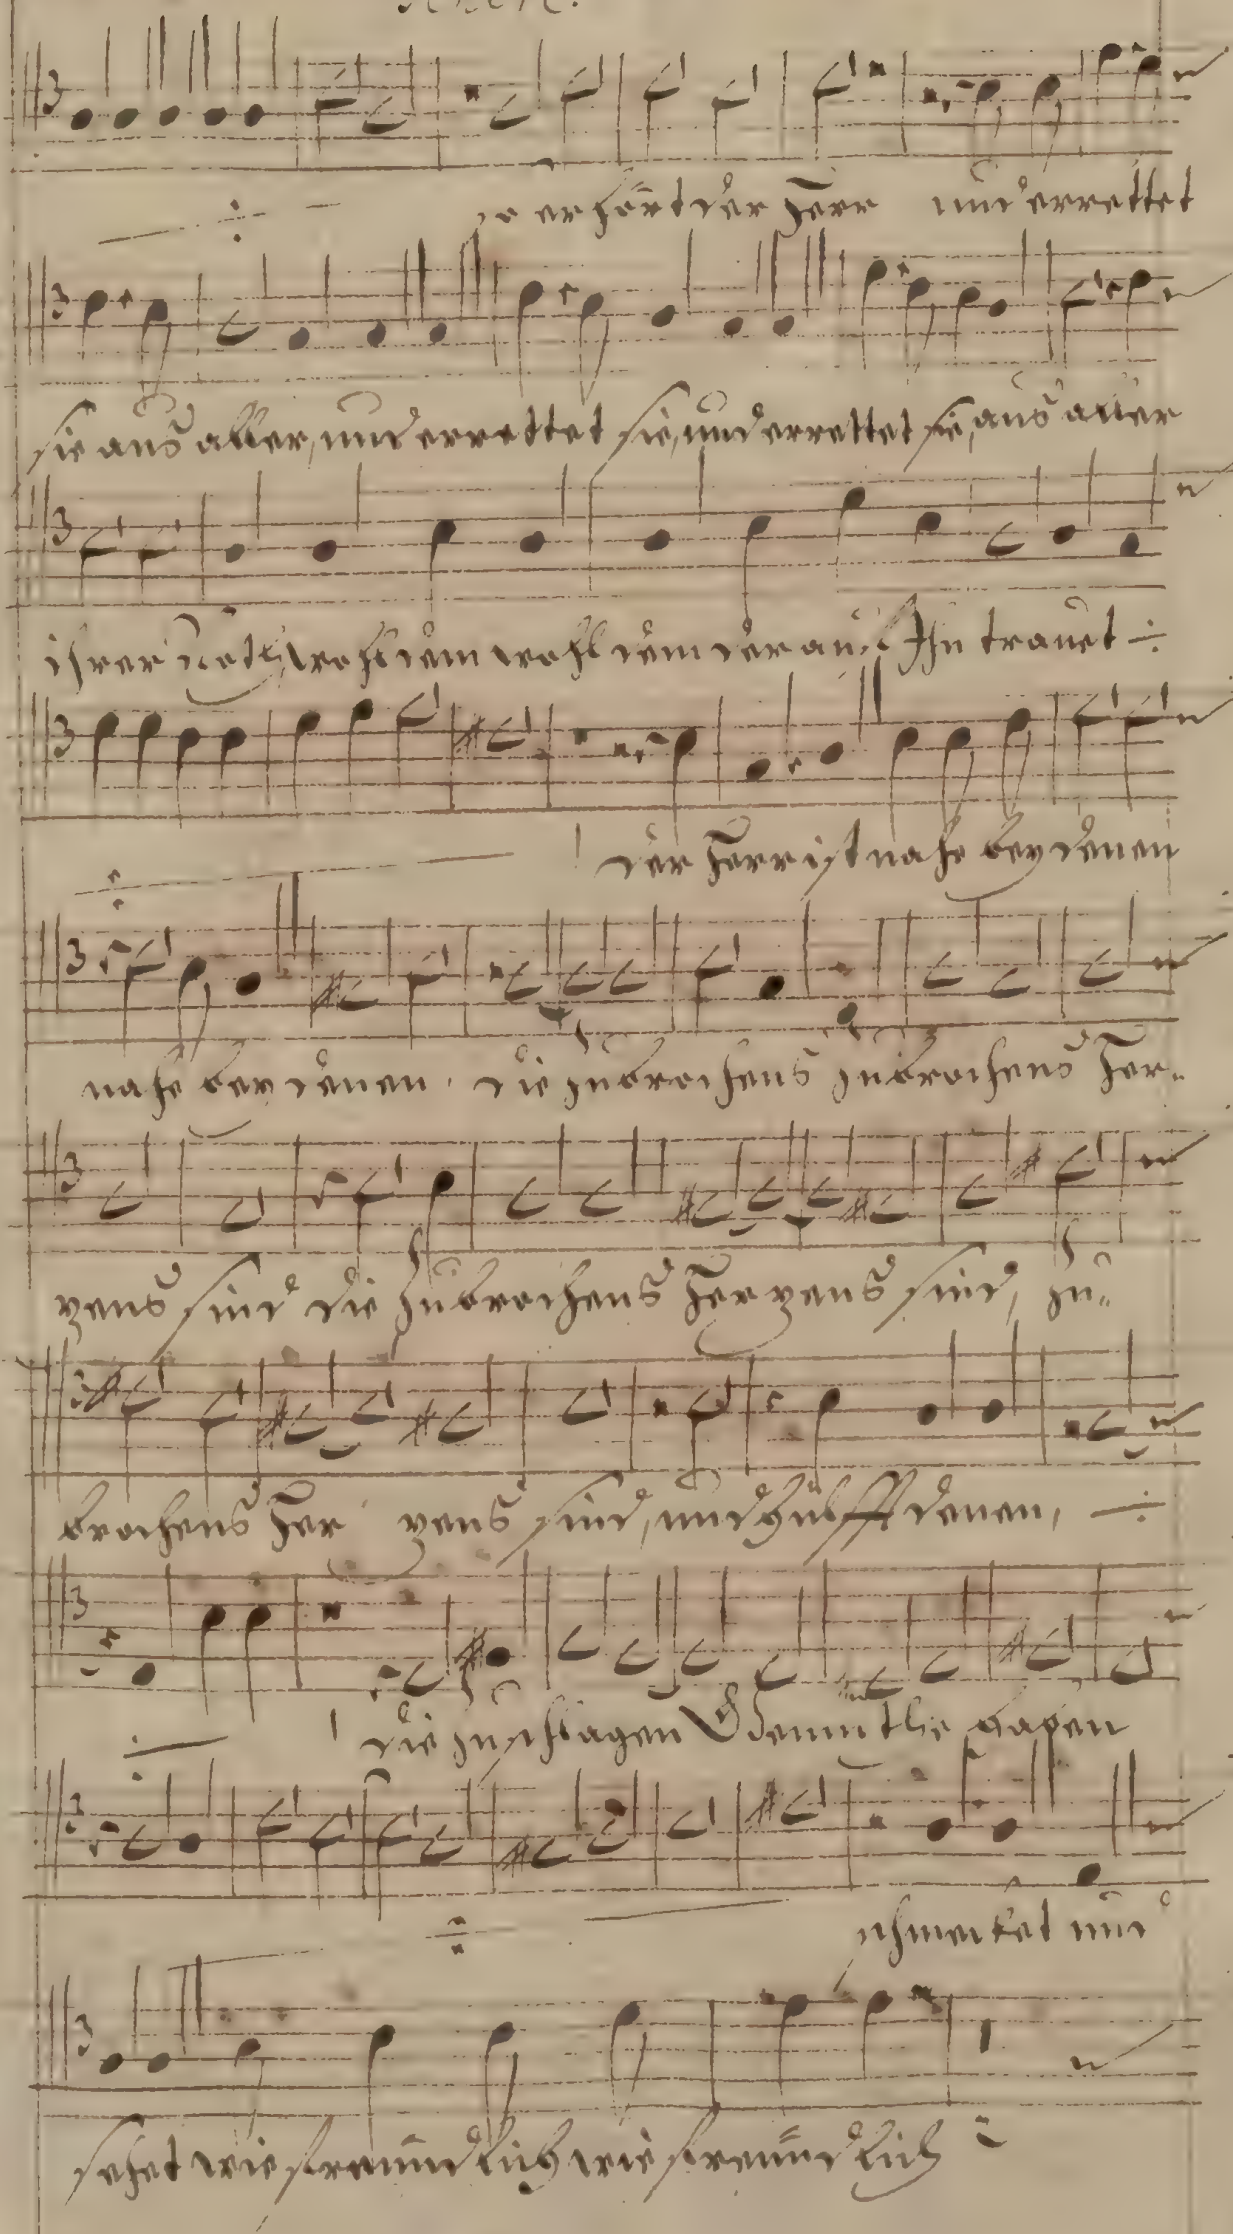 so erhört der Herr und errettet
sie aus aller, und errettet sie, und errettet sie, aus aller
ihrer noth, wohl dem wohl dem der auf Ihn trauet ÷
der Herr ist nahe bey denen
nahe bey denen die zubrochens zubrochens Her-
zens sind die zubrochens Herzens sind, zu-
brochens Her zens sind, und hülfft denen, ÷
die zuschlagen Gemüthe haben
schmecket und
sehet wie freundlich wie freundlich